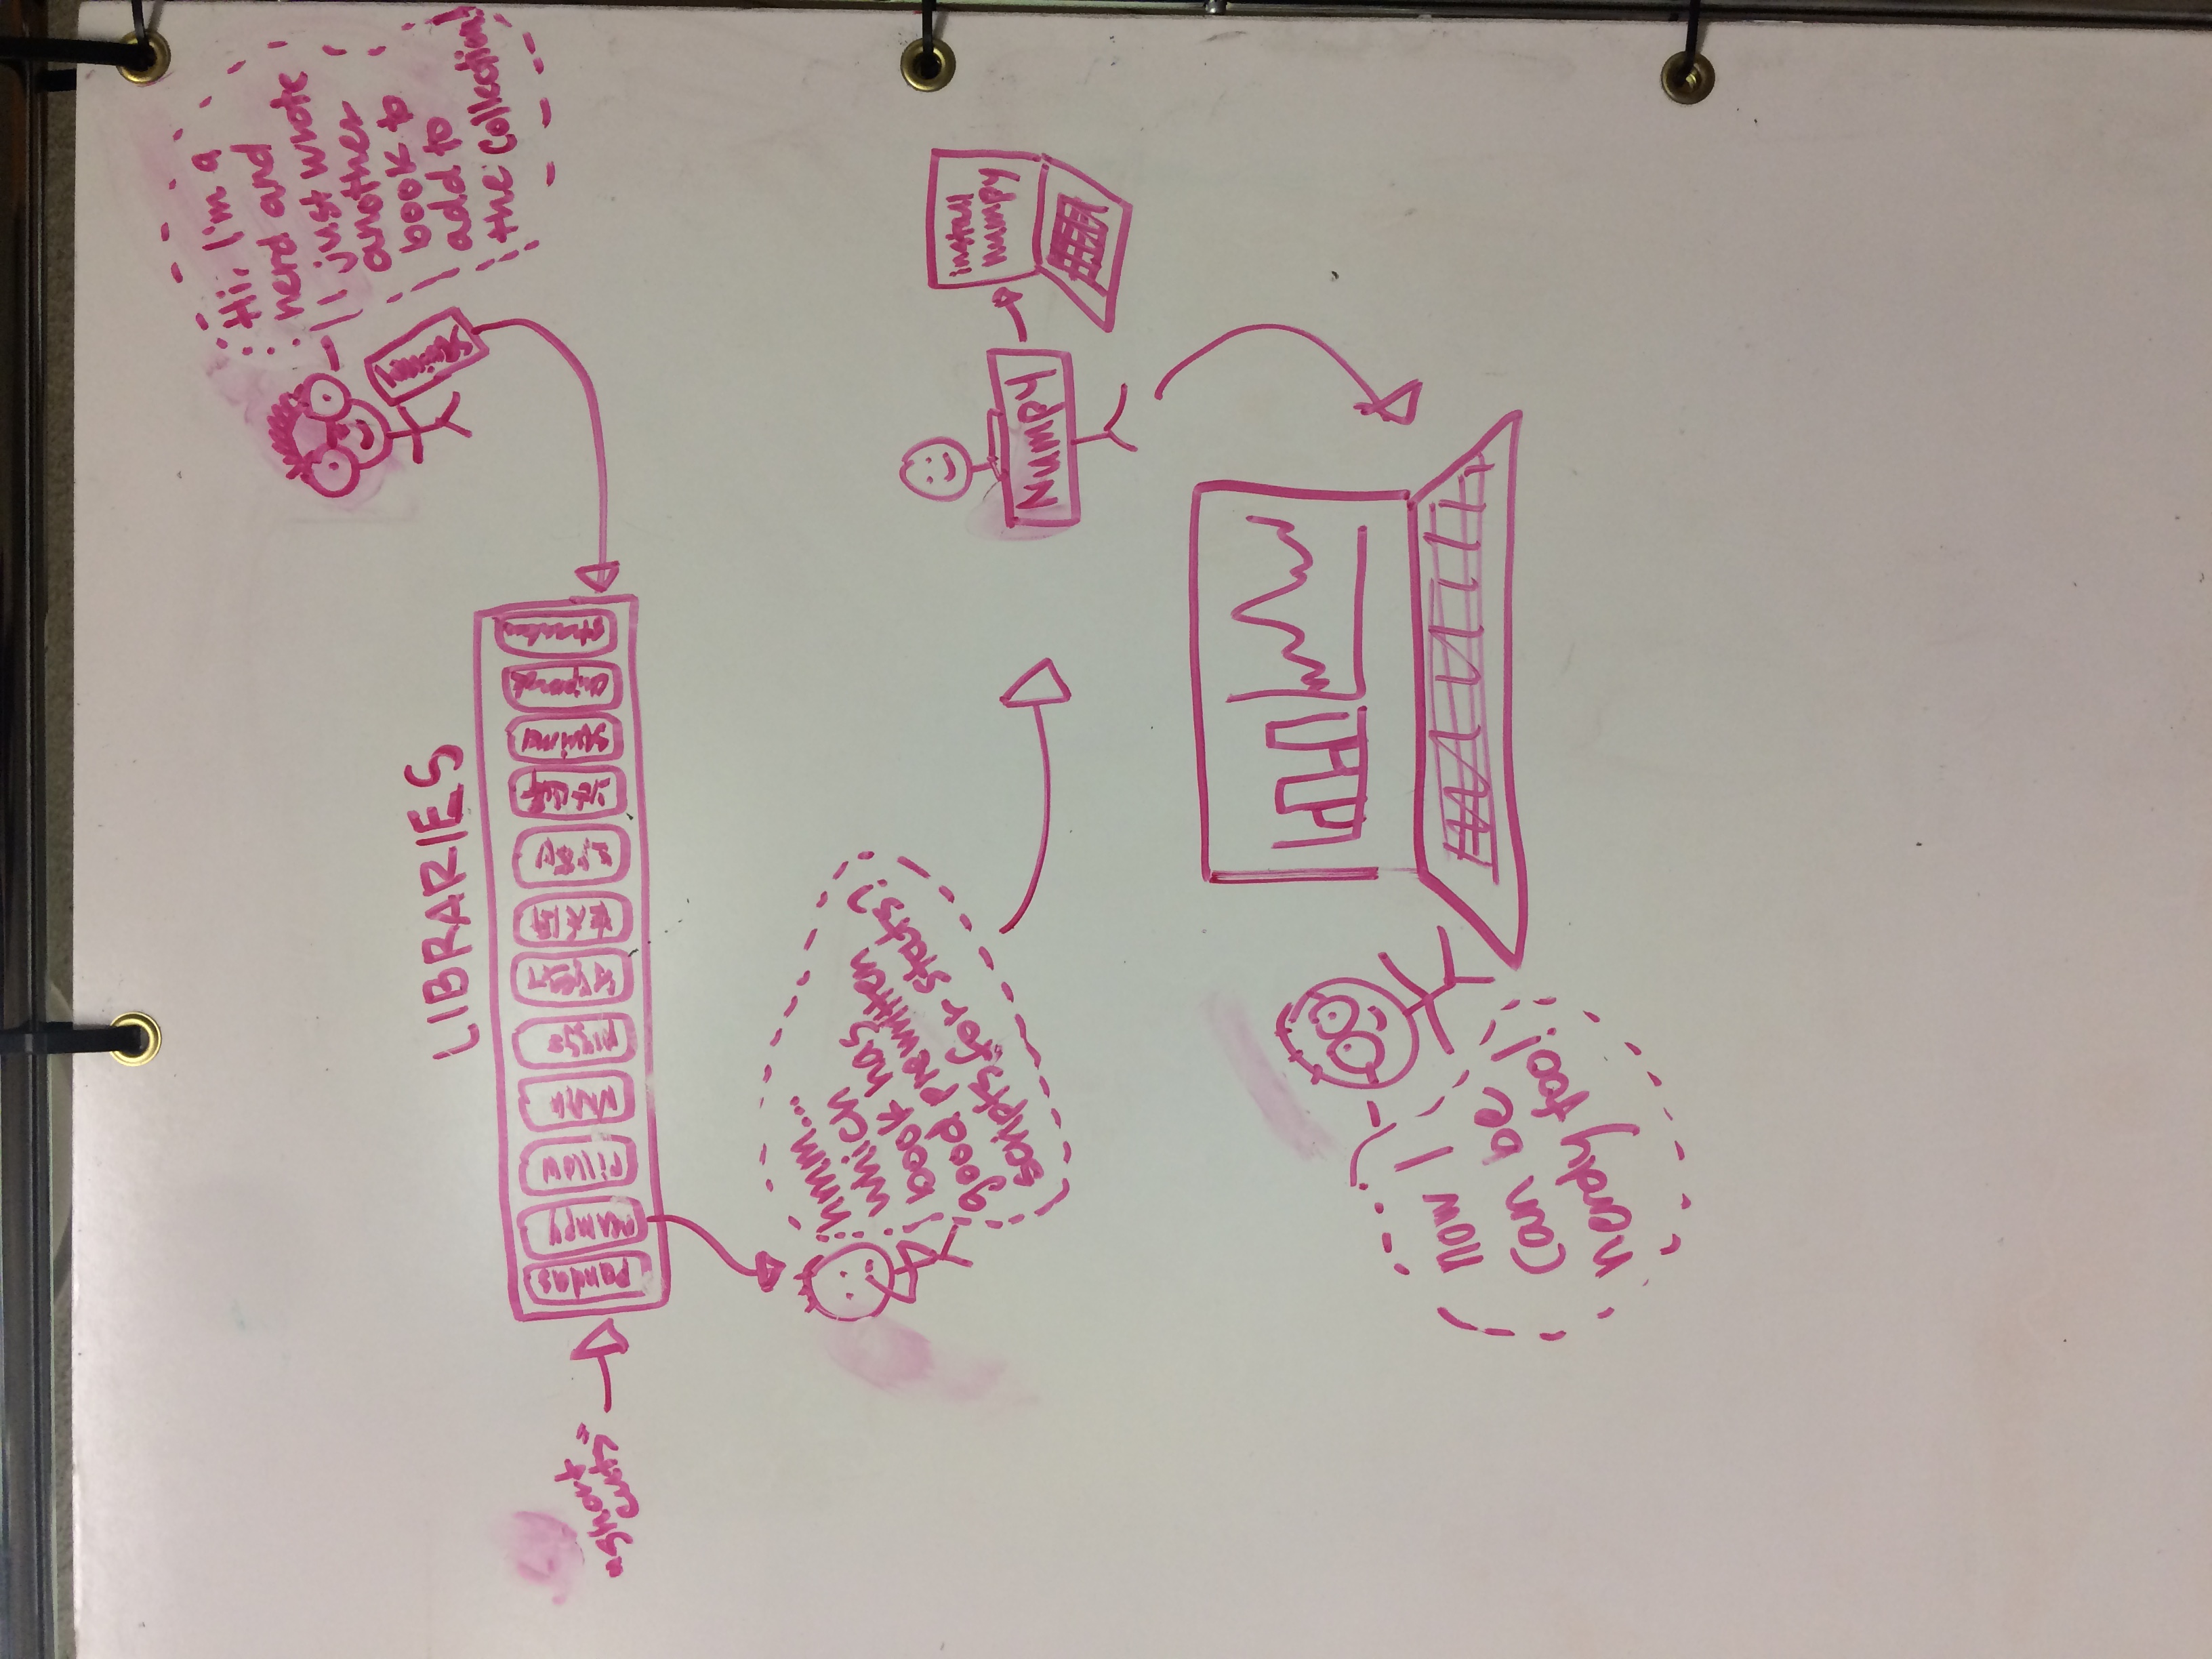 Hi, I'm a
nerd and
I just wrote
another
book to
add to
the collection!
LIBRARIES
"short
cuts"
pandas
numpy
Pillow
hmm...
which
book has
good prewritten
scripts for stats?
Numpy
install
numpy
now I
can be
nerdy too!